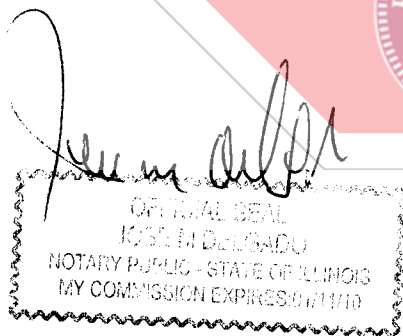 OFFICIAL SEAL
JOSE M DELGADO
NOTARY PUBLIC - STATE OF ILLINOIS
MY COMMISSION EXPIRES:01/11/10